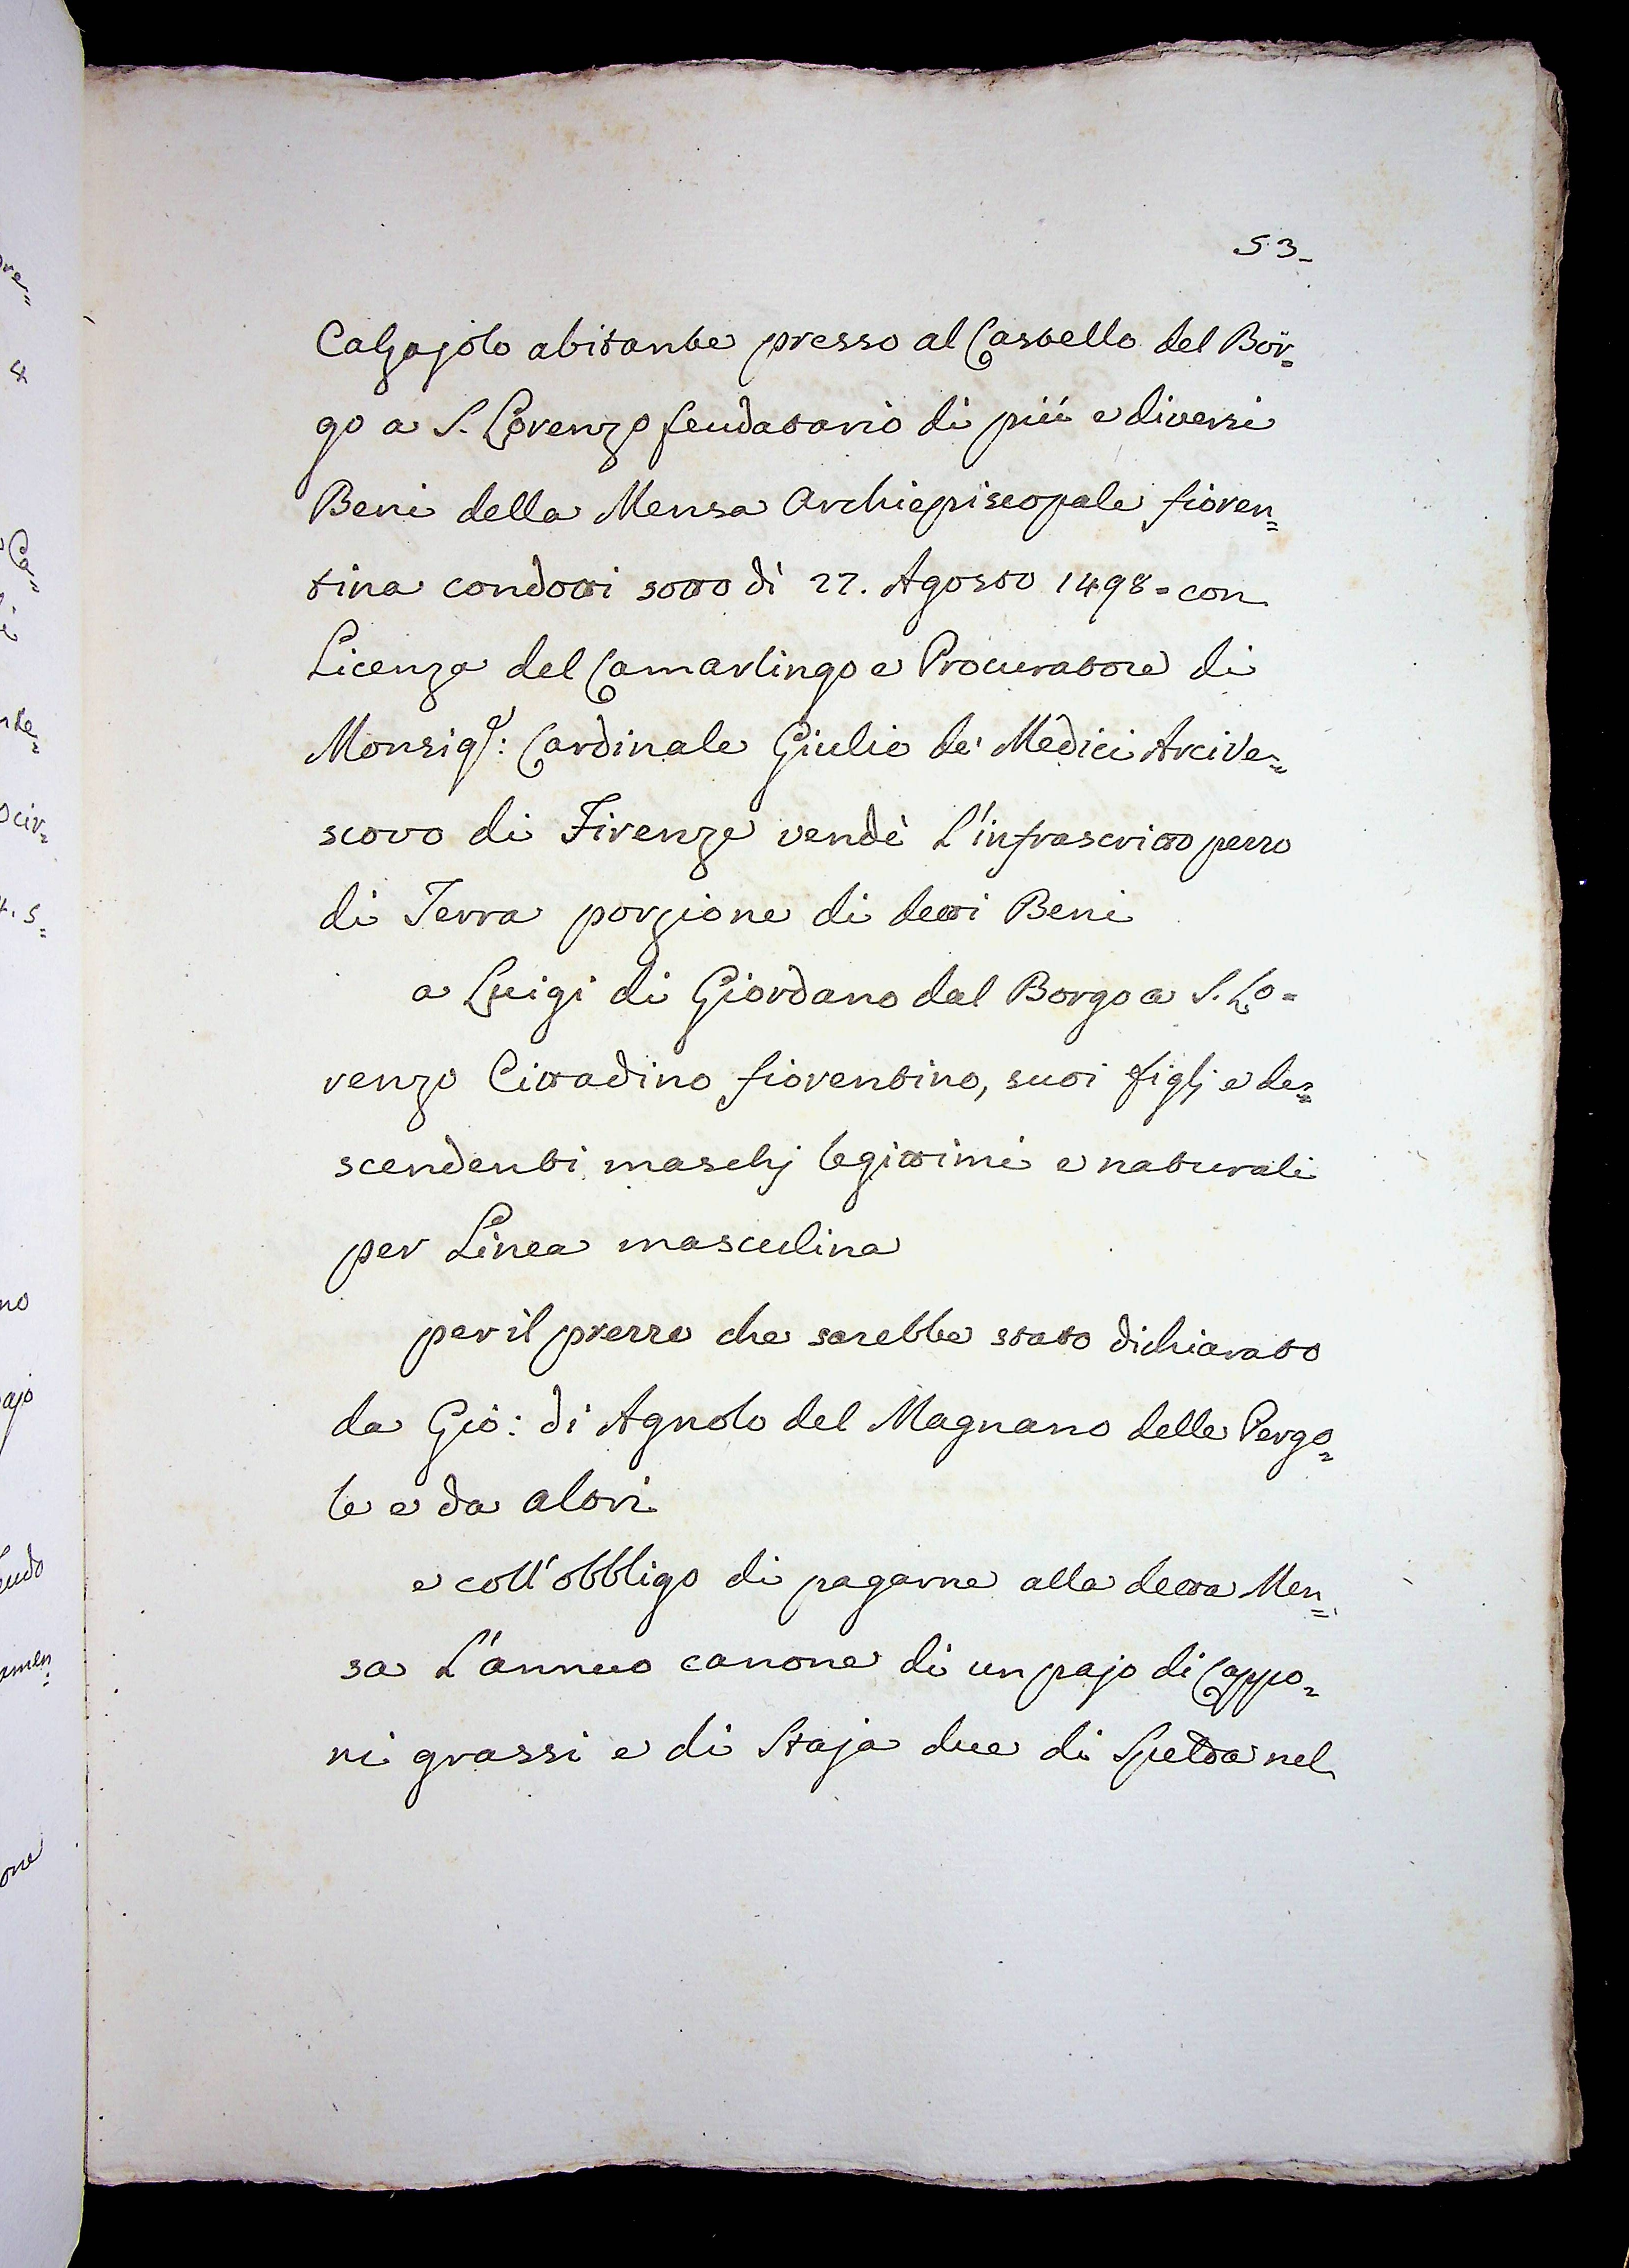 53.
Calzajolo abitante presso al Castello del Bor=
go a S. Lorenzo feudatario di più e diversi
Beni della Mensa Archiepiscopale fioren=
tina condotti sotto dì 27. Agosto 1498 = con
Licenza del Camarlingo e Procuratore di
Monsigr: Cardinale Giulio de' Medici Arcive=
scovo di Firenze vendè L'infrascritto pezzo
di Terra porzione di detti Beni
a Luigi di Giordano dal Borgo a S. Lo=
renzo Cittadino fiorentino, suoi figlj e de=
scendenti maschj legittimi e naturali
per Linea masculina
per il prezzo che sarebbe stato dichiarato
da Gio: di Agnolo del Magnano delle Pergo=
le e da altri
e coll'obbligo di pagarne alla detta Men=
sa L'annuo canone di un pajo di Cappo=
ni grassi e di Staja due di Spelda nel